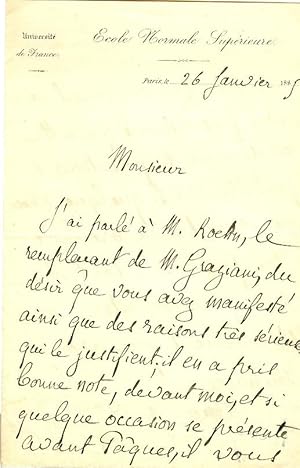 Université
de France
Ecole Normale Supérieure
Paris, le 26 Janvier 1895
Monsieur
J'ai parlé à M. le
remplaçant de M. Graziani, du
désir que vous avez manifesté
ainsi que des raisons très sérieuses
qui le justifient. il en a pris
bonne note, devant moi, et si
quelque occasion se présente
avant Pâques, il vous